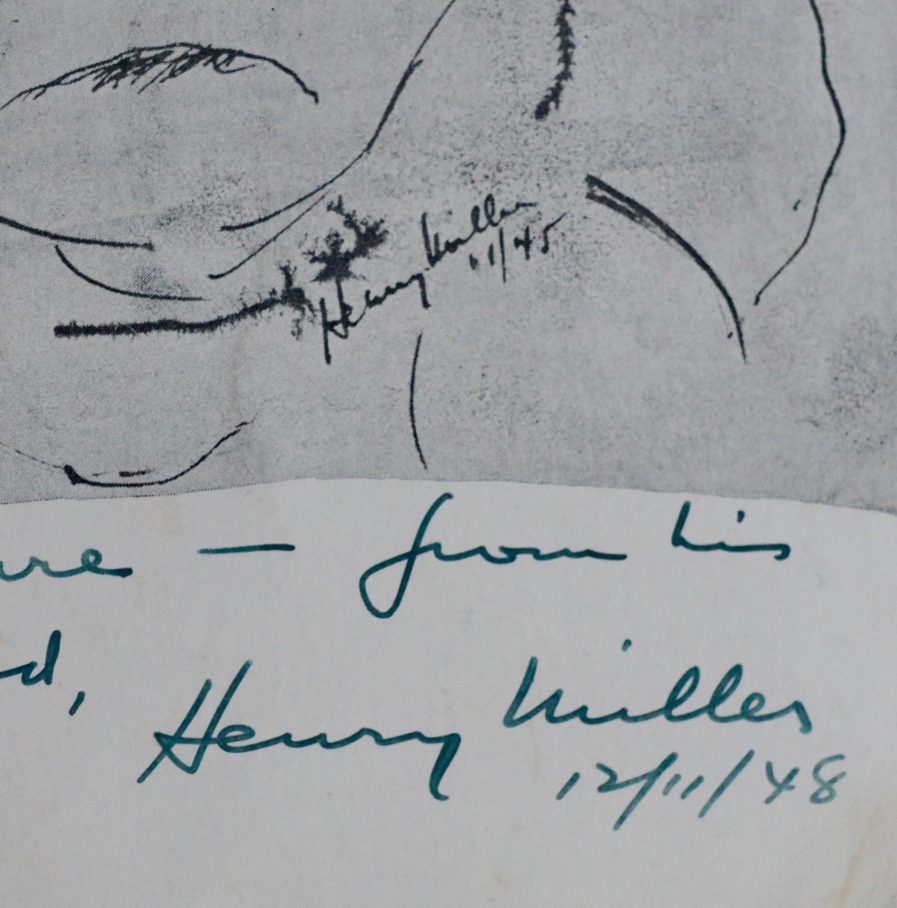 Henry Miller
11/45
— from his
Henry Miller
12/11/48